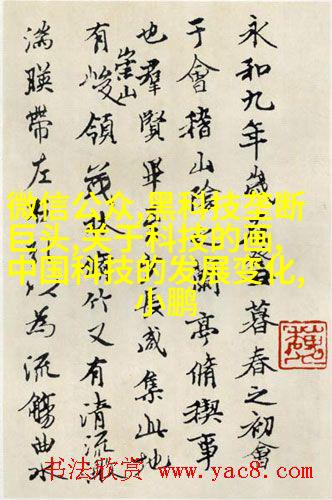 永和九年歲暮春之初會
于會稽山陰蘭亭脩禊事
也羣賢畢長咸集此地
有崇山峻領茂林脩竹又有清流激
湍暎帶左以為流觴曲水
微信公众,黑科技垄断
巨头,关于科技的画,
中国科技的发展变化,
小鹏
书法欣赏 www.yac8.com